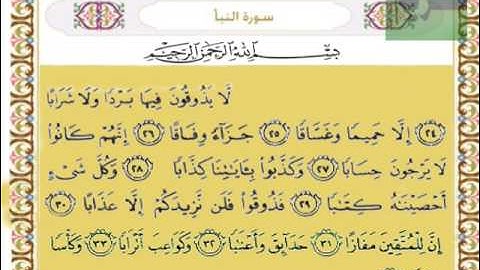 سورة النبأ
بِسْمِ اللَّهِ الرَّحْمَٰنِ الرَّحِيمِ
لَّا يَذُوقُونَ فِيهَا بَرْدًا وَلَا شَرَابًا
٢٤ إِلَّا حَمِيمًا وَغَسَّاقًا ٢٥ جَزَآءً وِفَاقًا ٢٦ إِنَّهُمْ كَانُوا۟
لَا يَرْجُونَ حِسَابًا ٢٧ وَكَذَّبُوا۟ بِـَٔايَٰتِنَا كِذَّابًا ٢٨ وَكُلَّ شَىْءٍ
أَحْصَيْنَٰهُ كِتَٰبًا ٢٩ فَذُوقُوا۟ فَلَن نَّزِيدَكُمْ إِلَّا عَذَابًا ٣٠
إِنَّ لِلْمُتَّقِينَ مَفَازًا ٣١ حَدَآئِقَ وَأَعْنَٰبًا ٣٢ وَكَوَاعِبَ أَتْرَابًا ٣٣ وَكَأْسًا